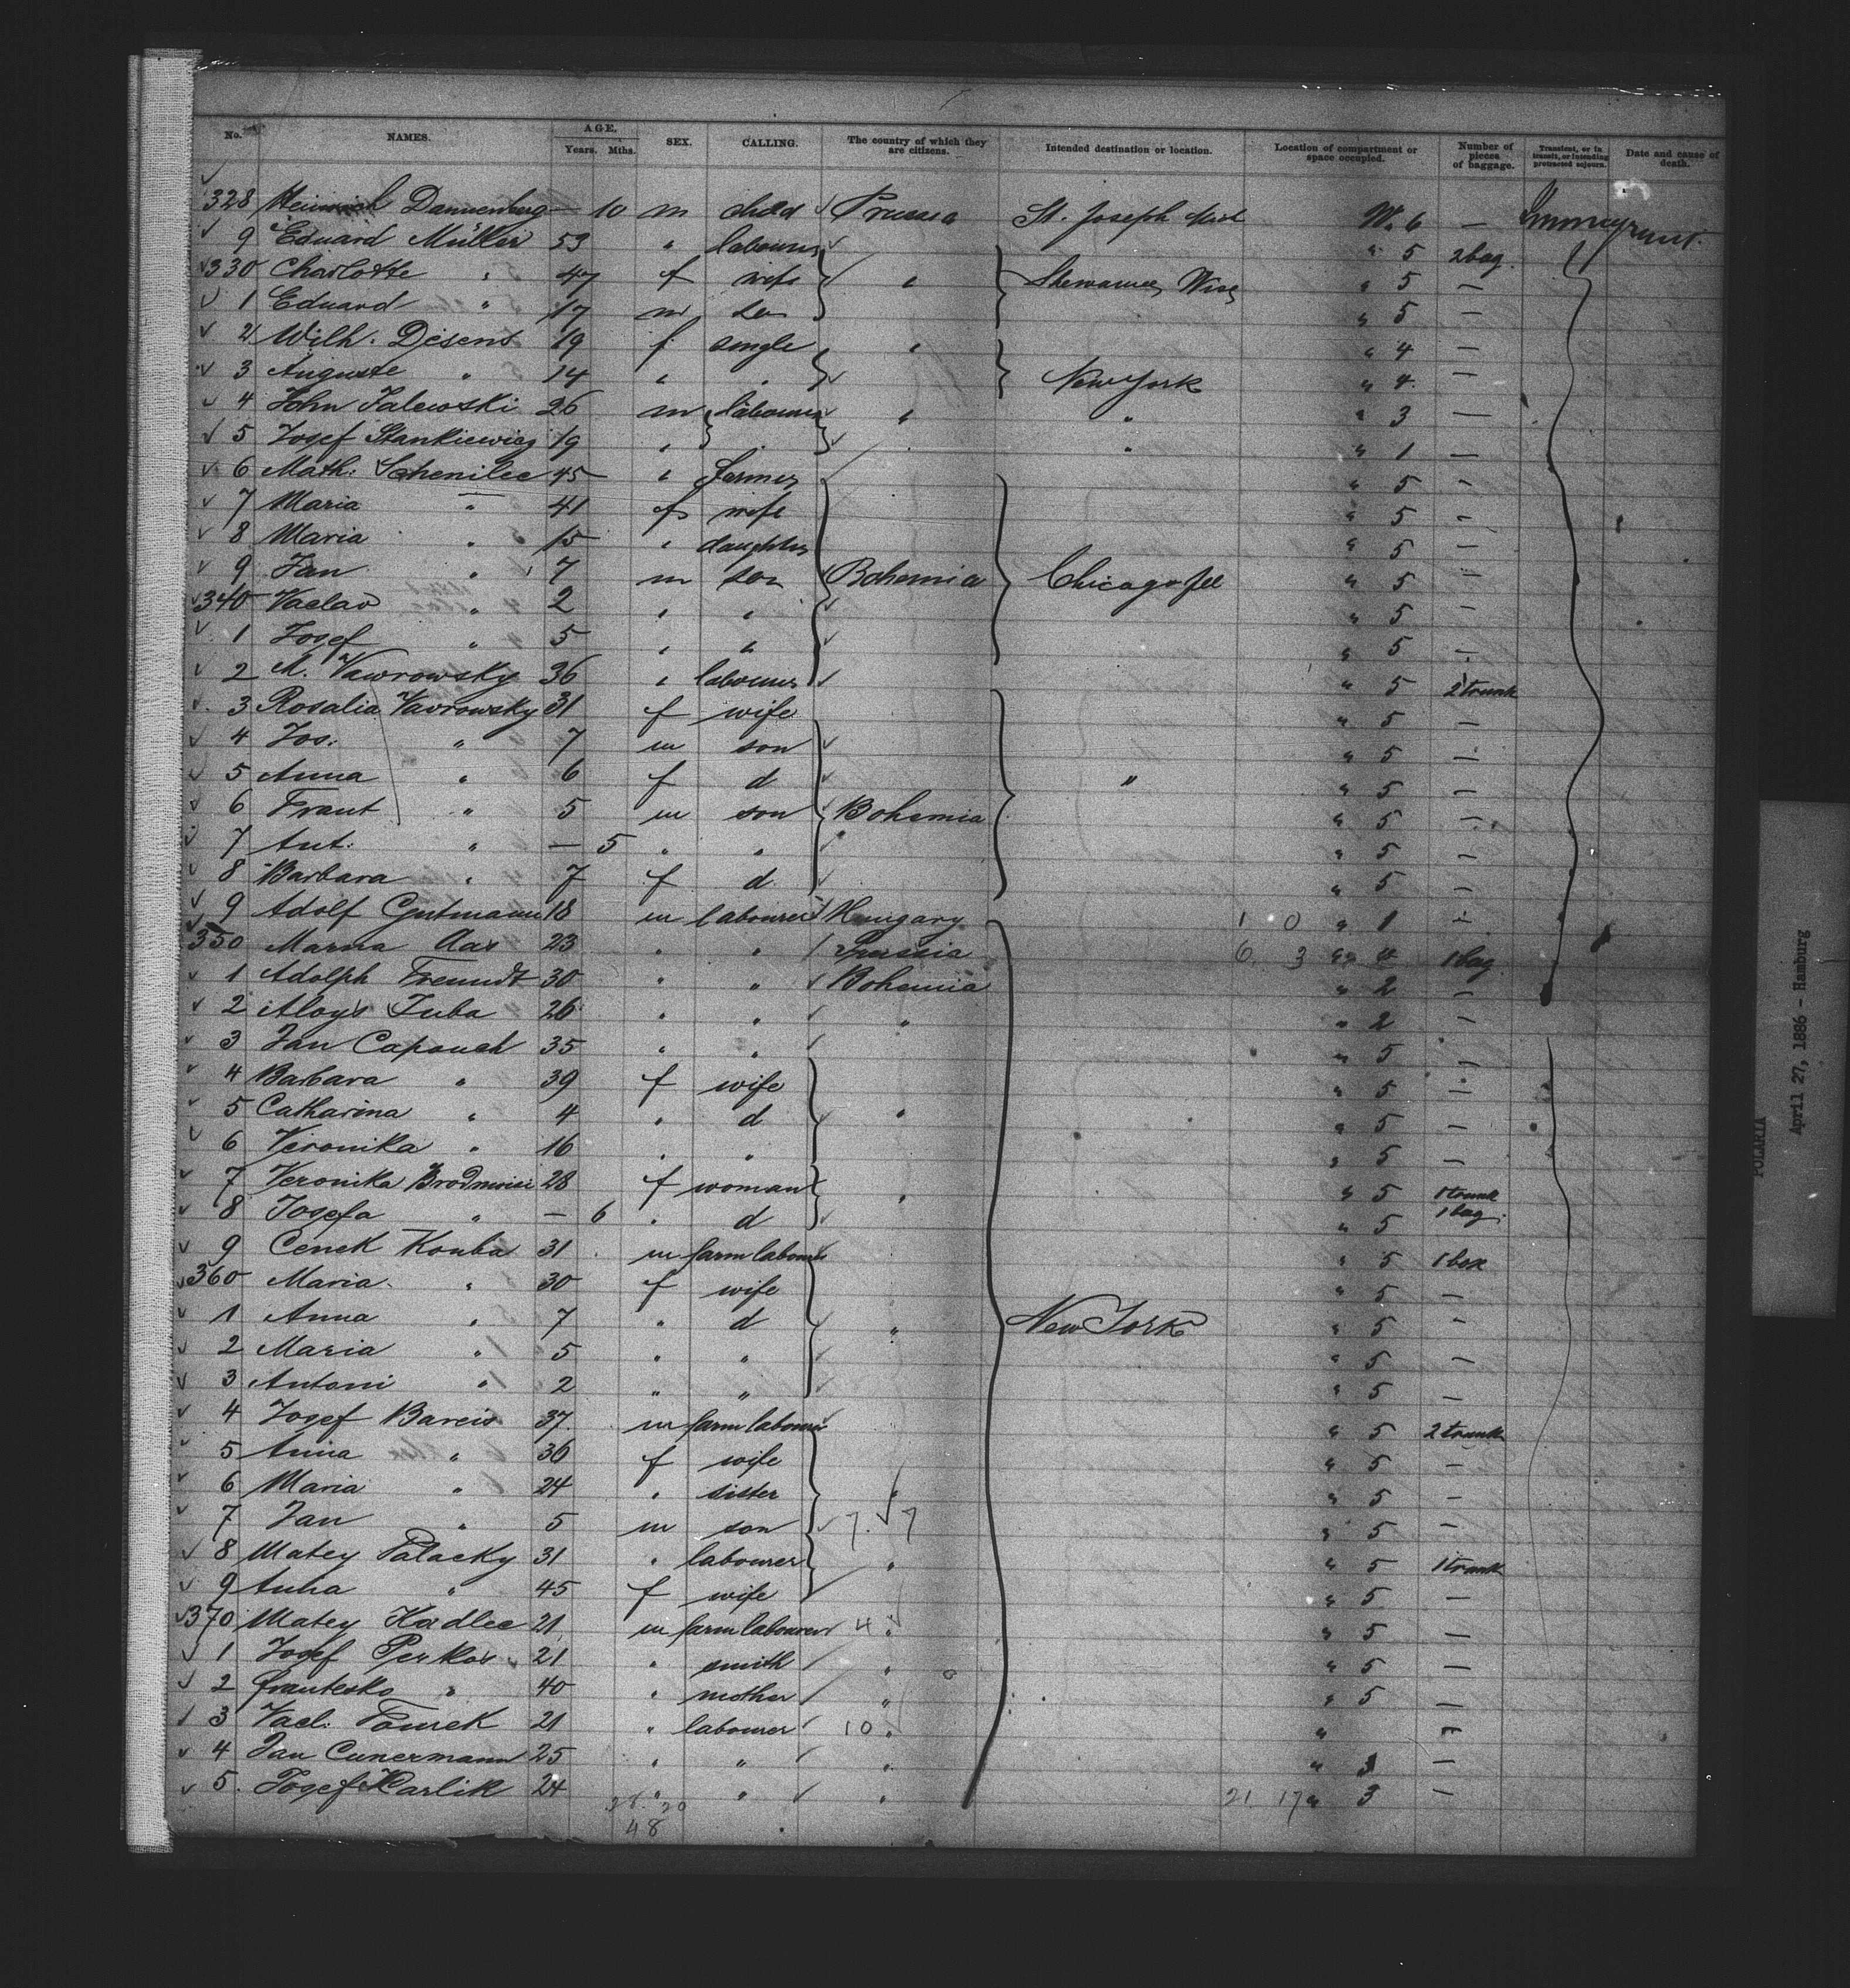 No. NAMES. AGE. Years. Mths. SEX. CALLING. The country of which they are citizens. Intended destination or location. Location of compartment or space occupied. Number of pieces of baggage. Transient, or in transit, or intending protracted sojourn. Date and cause of death.
328 Heinrich Dannenberg — 10 m child Prussia St. Joseph W. 6 —
9 Eduard Müller 53 " labourer " 5 2 bag.
330 Charlotte " 47 f wife " Wis " 5 —
1 Eduard " 17 m son " 5 —
2 Wilh. Djesens 19 f single " " 4 —
3 Auguste " 14 " " New York " 4 —
4 John Jalewski 26 m labourer " " " 3 —
5 Josef Stankiewicz 19 " " " " 1 —
6 Math: Schenilec 45 " farmer " 5 —
7 Maria " 41 f wife " 5 —
8 Maria " 15 " daughter " 5 —
9 Jan " 7 m son Bohemia Chicago Ill " 5 —
340 Vaclav " 2 " " " 5 —
1 Josef " 5 " " " 5 —
2 M. Vawrowsky 36 " labourer " 5 2 trunk
3 Rosalia Vavrowsky 31 f wife " 5 —
4 Jos: " 7 m son " 5 —
5 Anna " 6 f d " " 5 —
6 Frant " 5 m son Bohemia " 5 —
7 Ant: " — 5 " " " 5 —
8 Barbara " 7 f d " 5 —
9 Adolf Gutmann 18 m labourer Hungary 1 0 " 1 —
350 Marna Aas 23 " " Prussia 6 3 " 4 1 bag
1 Adolph Freundt 30 " " Bohemia " 2 —
2 Aloys Tuba 26 " " " " 2 —
3 Jan Capouch 35 " " " 5 —
4 Barbara " 39 f wife " 5 —
5 Catharina " 4 " d " " 5 —
6 Veronika " 16 " " " 5 —
7 Veronika 28 f woman " " 5 1 trunk 1 bag
8 Josefa " — 6 " d " 5
9 Cenek Kouba 31 m farmlabourer " 5 1 box
360 Maria " 30 f wife " 5 —
1 Anna " 7 " d " New York " 5 —
2 Maria " 5 " " " 5 —
3 Antoni " 2 " " " 5 —
4 Josef Bareis 37 m farmlabourer " 5 2 trunk
5 Anna " 36 f wife " 5 —
6 Maria " 24 " sister " " 5 —
7 Jan " 5 m son 7. 7 " 5 —
8 Matey Palacky 31 " labourer " " 5 1 trunk
9 Anna " 45 f wife " 5 —
370 Matey Kadlec 21 m farmlabourer 4 " " 5 —
1 Josef Perkas 21 " smith " " 5 —
2 Frantesko " 40 " mother " " 5 —
3 Vacl. Tourek 21 " labourer 10 " " —
4 Jan Cunermann 25 " " " " 3 —
5. Josef Karlik 24 " " " 21 17 " 3 —
28. 20
48
April 27, 1886 - Hamburg
POLARIA